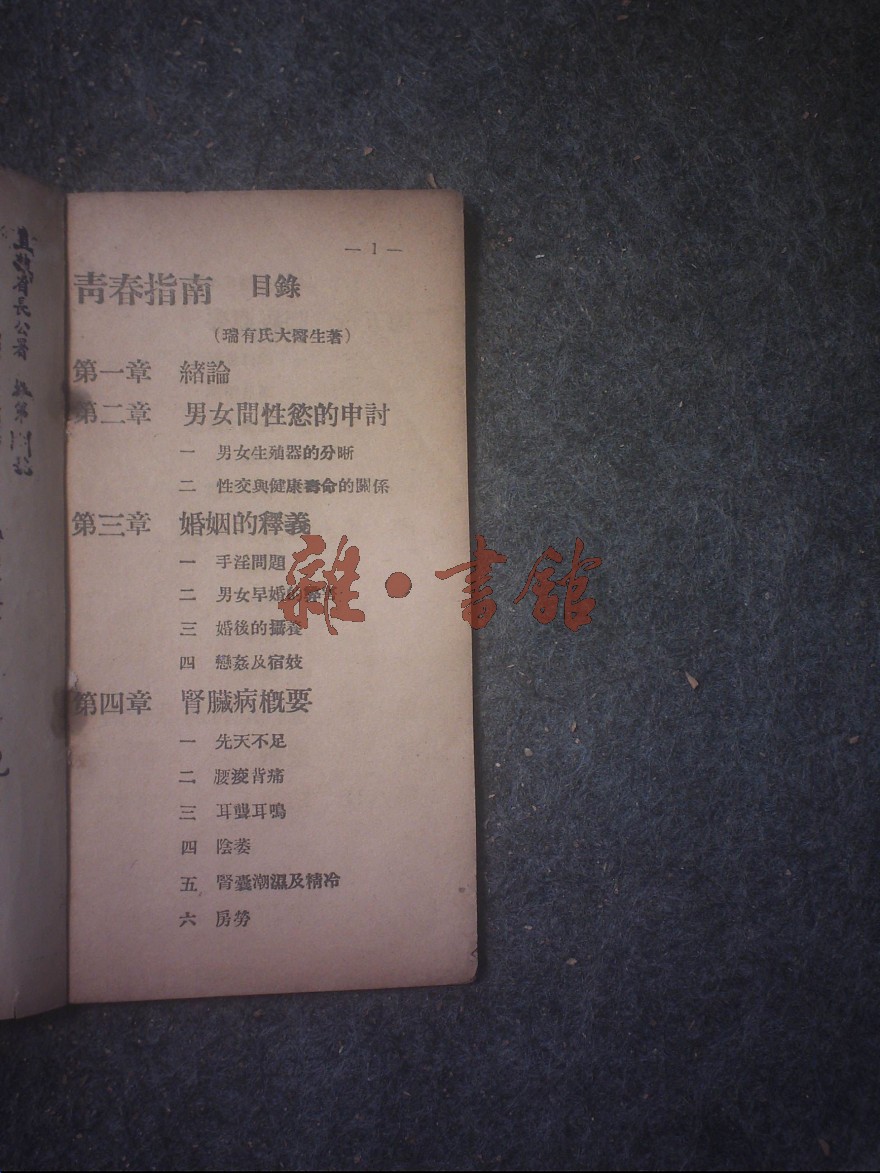 — 1 —
靑春指南 目錄
(瑞有氏大醫生著)
第一章 緒論
第二章 男女間性慾的申討
一 男女生殖器的分晰
二 性交與健康壽命的關係
第三章 婚姻的釋義
一 手淫問題
二 男女早婚的
三 婚後的攝養
四 戀姦及宿妓
第四章 腎臟病槪要
一 先天不足
二 腰痠背痛
三 耳聾耳鳴
四 陰萎
五 腎囊潮濕及精冷
六 房勞
雜·書館
省長公署